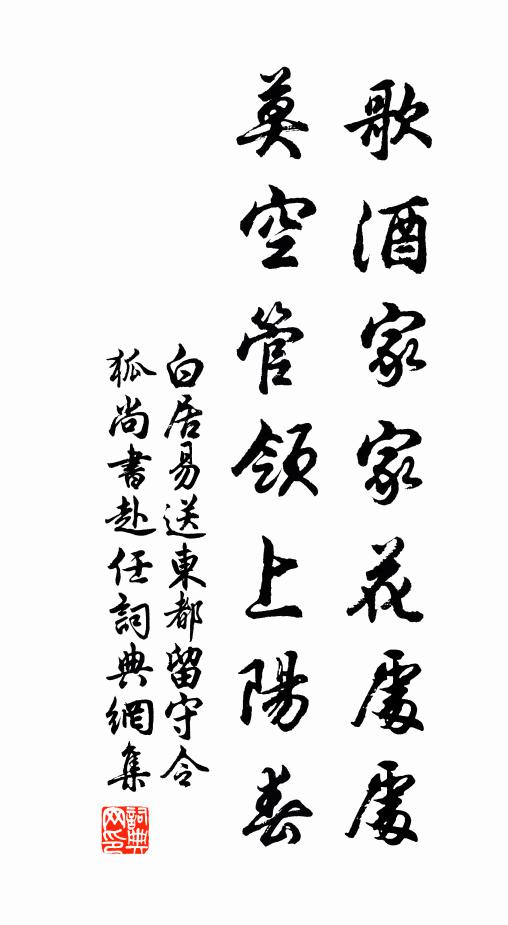 歌酒家家花處處
莫空管領上陽春
白居易送東都留守令
狐尚書赴任詞典網集
詞典
网印